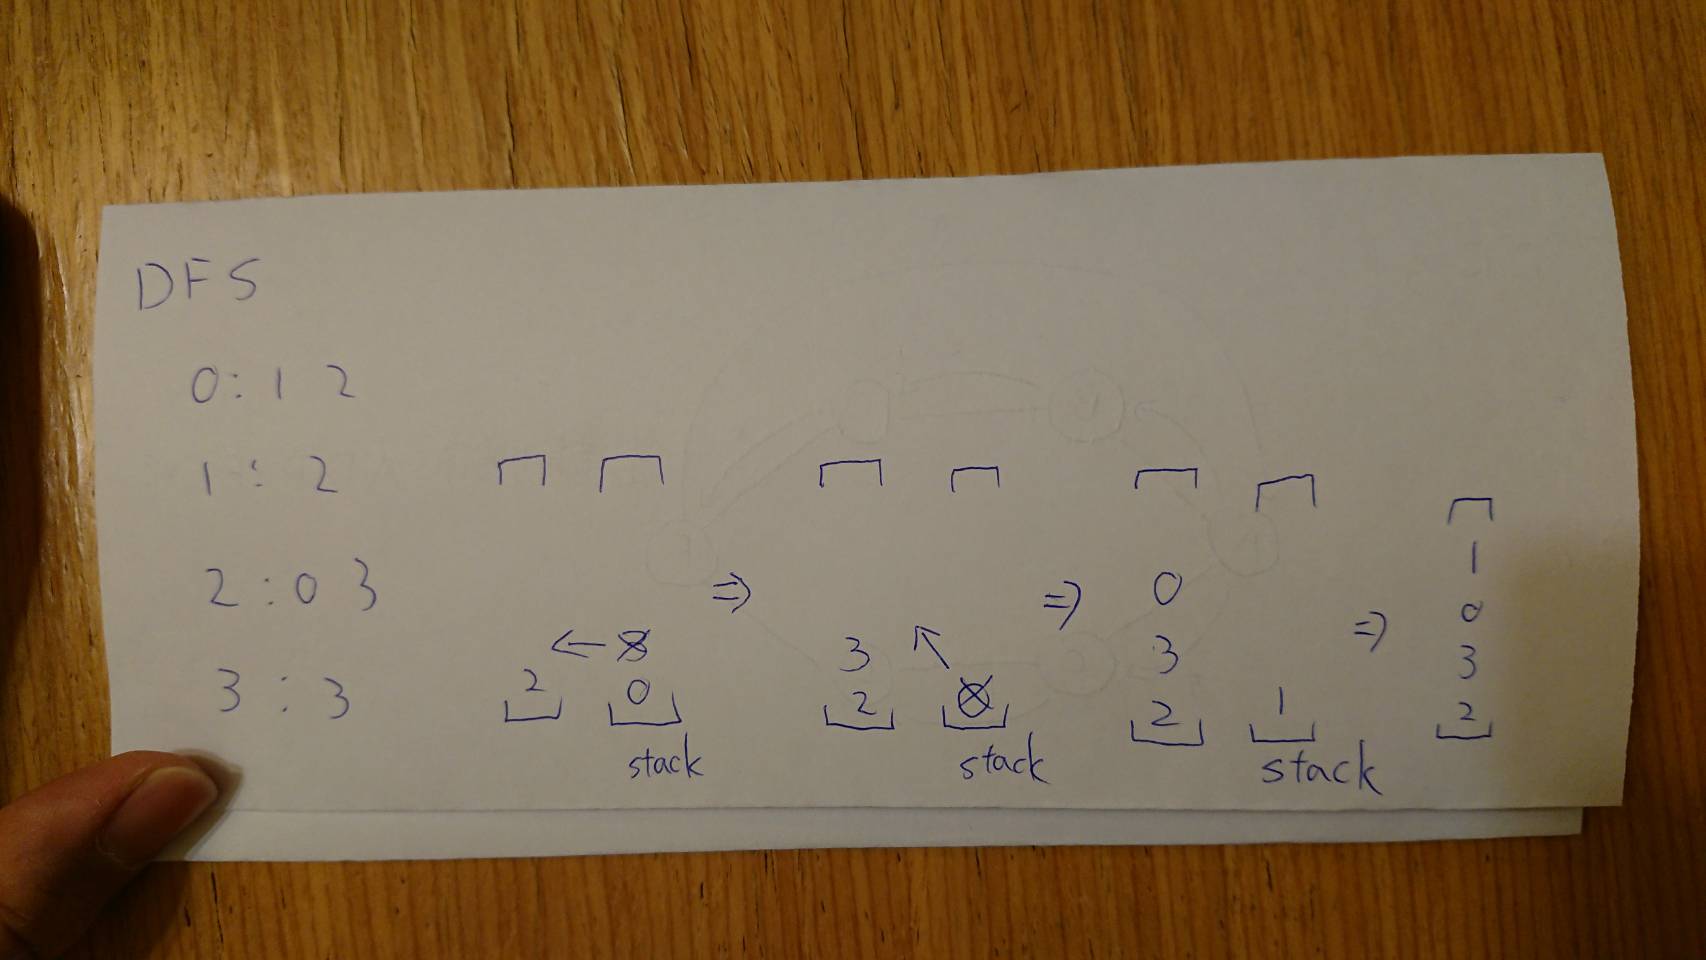 DFS
0: 1 2
1: 2
2: 0 3
3: 3
2 ← 3
0
stack
⇒
3
2 0
stack
⇒
0
3
2 1
stack
⇒
1
0
3
2